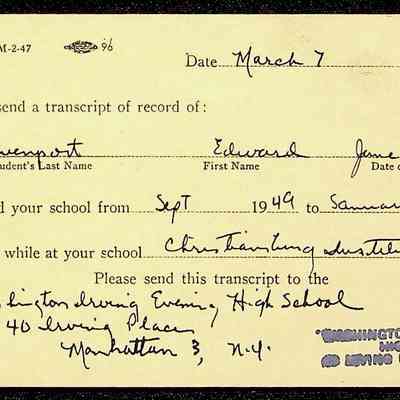 M-2-47 96
Date March 7
send a transcript of record of:
venport Edward June
udent's Last Name First Name Date o
d your school from Sept 1949 to Januar
while at your school Christiansburg Institu
Please send this transcript to the
hington Irving Evening High School
40 Irving Place
Manhattan 3, N.Y.
WASHINGTO
HIG
40 IRVING